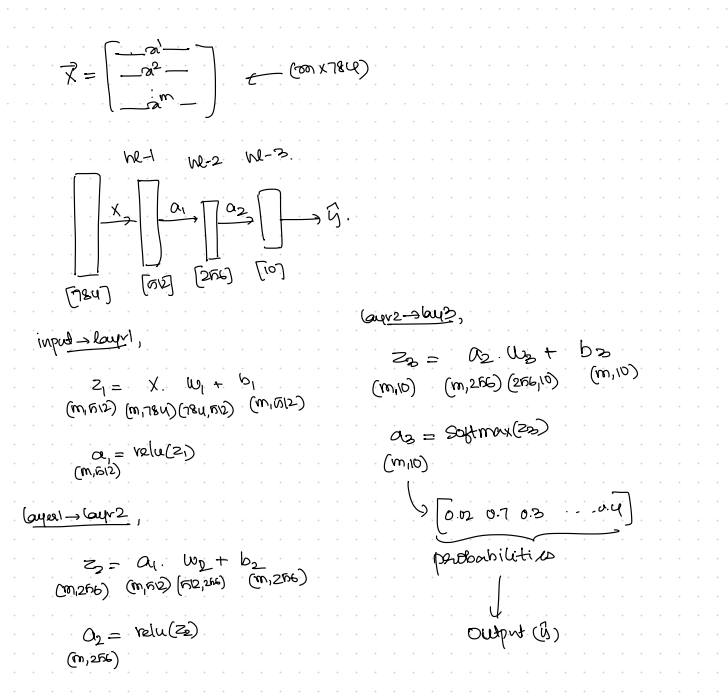 X⃗ = [ —x¹— ← (m×784)
—x²—
⋮
—xᵐ— ]
HL-1 HL-2 HL-3.
X → a₁ → a₂ → ŷ.
[784] [512] [256] [10]
input → layr1,
z₁ = X. w₁ + b₁
(m,512) (m,784) (784,512) (m,512)
a₁ = relu(z₁)
(m,512)
layer1 → layr2,
z₂ = a₁. w₂ + b₂
(m,256) (m,512) (512,256) (m,256)
a₂ = relu(z₂)
(m,256)
layr2 → lay3,
z₃ = a₂. w₃ + b₃
(m,10) (m,256) (256,10) (m,10)
a₃ = softmax(z₃)
(m,10)
[0.02 0.7 0.3 ... 0.4]
probabilities
output (ŷ)